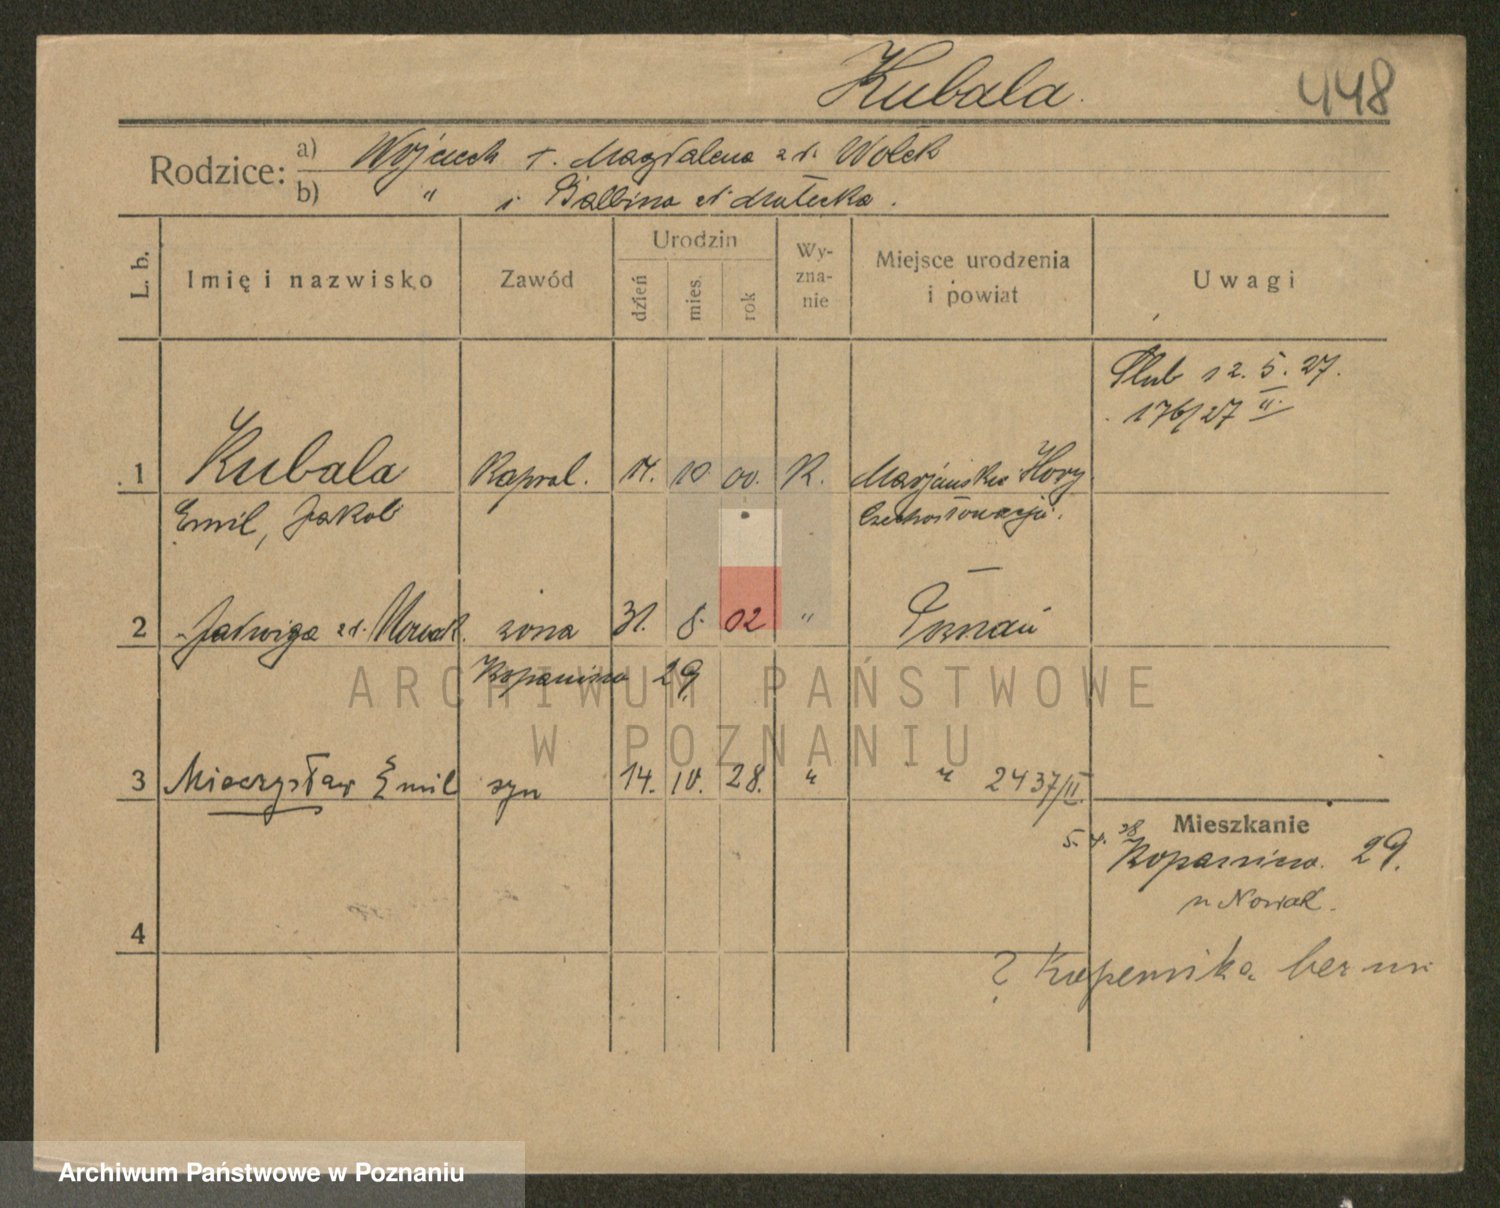 Kubala.
448
Rodzice:
a) Wojciech i. Magdalena zd. Wołek
b) " i Balbina zd
L. b.
Imię i nazwisko
Zawód
Urodzin
dzień
mies.
rok
Wy-
zna-
nie
Miejsce urodzenia
i powiat
Uwagi
Ślub 12. 5. 27.
176/27 II.
1 Kubala Kapral. 10. 00. K. Marjańskie Hory
Emil, Jakob Czechosłowacja.
2 Jadwiga zd. Nowak. żona 31. 8. 02 " Poznań
Kopanina 29
3 Mieczysław Emil syn 14. 10. 28. " " 2437/II
Mieszkanie
5. 4. 28
Kopanina. 29.
u Nowak.
4
? Kopernika bez
ARCHIWUM PAŃSTWOWE
W POZNANIU
Archiwum Państwowe w Poznaniu